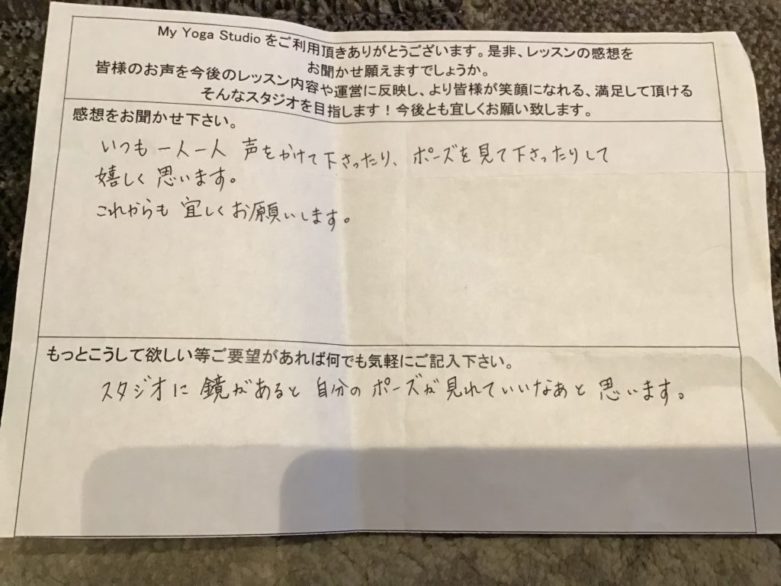 My Yoga Studio をご利用頂きありがとうございます。是非、レッスンの感想を
お聞かせ願えますでしょうか。
皆様のお声を今後のレッスン内容や運営に反映し、より皆様が笑顔になれる、満足して頂ける
そんなスタジオを目指します！今後とも宜しくお願い致します。
感想をお聞かせ下さい。
いつも一人一人 声をかけて下さったり、ポーズを見て下さったりして
嬉しく思います。
これからも宜しくお願いします。
もっとこうして欲しい等ご要望があれば何でも気軽にご記入下さい。
スタジオに鏡があると自分のポーズが見れていいなあと思います。